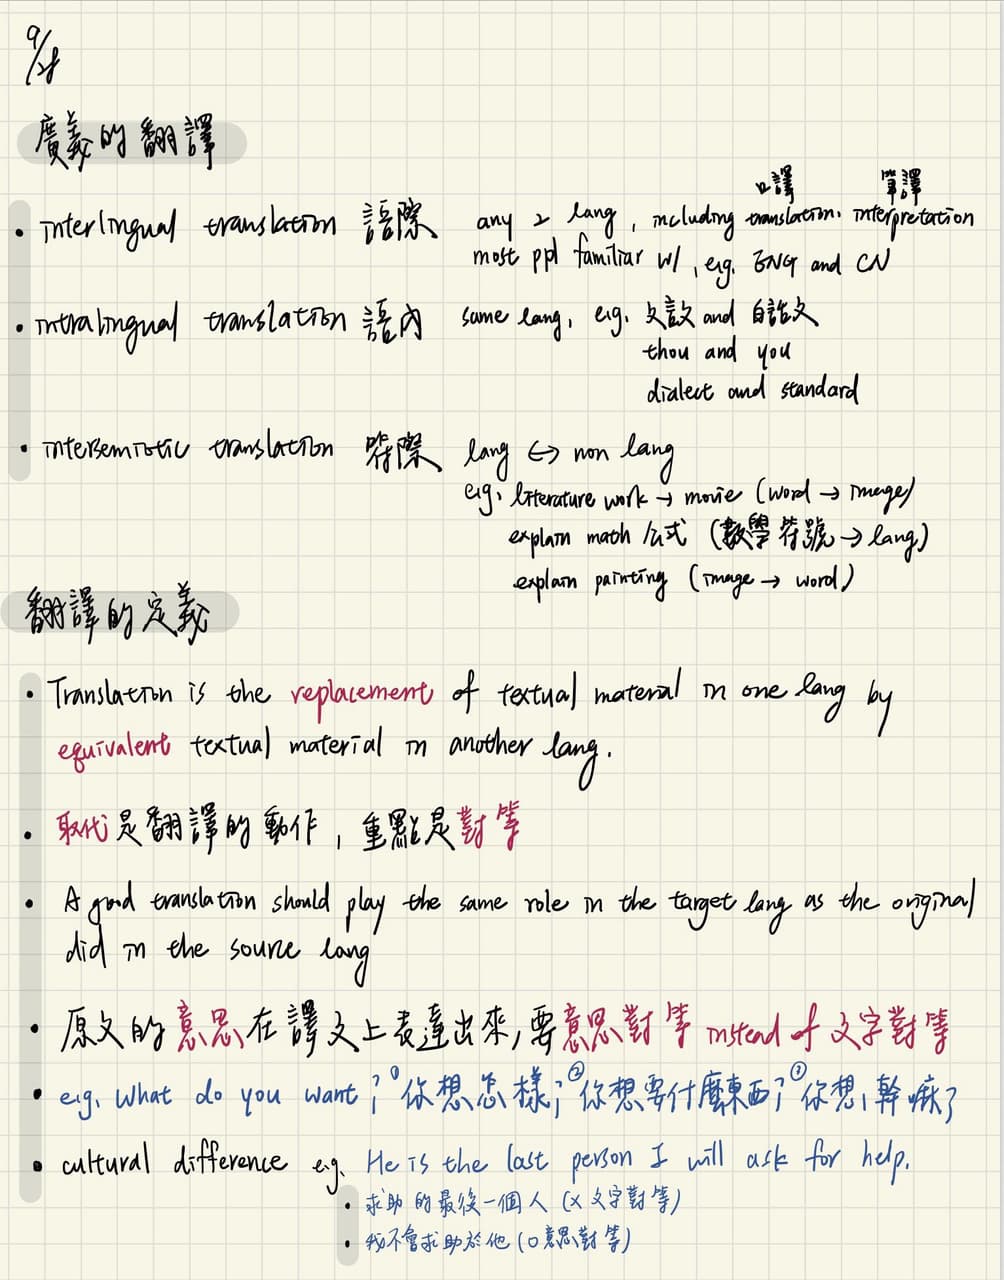 9/28
廣義的翻譯
口譯 筆譯
• interlingual translation 語際 any 2 lang, including translation, interpretation
most ppl familiar w/, e.g. ENG and CN
• intralingual translation 語內 same lang, e.g. 文言文 and 白話文
thou and you
dialect and standard
• intersemiotic translation 符際 lang ↔ non lang
e.g. literature work → movie (word → image)
explain math 公式 (數學符號 → lang)
explain painting (image → word)
翻譯的定義
• Translation is the replacement of textual material in one lang by
equivalent textual material in another lang.
• 取代是翻譯的動作, 重點是對等
• A good translation should play the same role in the target lang as the original
did in the source lang
• 原文的意思在譯文上表達出來, 要意思對等 instead of 文字對等
• e.g. What do you want? ①你想怎樣? ②你想要什麼東西? ③你想幹嘛?
• cultural difference e.g. He is the last person I will ask for help.
• 求助的最後一個人 (X 文字對等)
• 我不會求助於他 (O 意思對等)